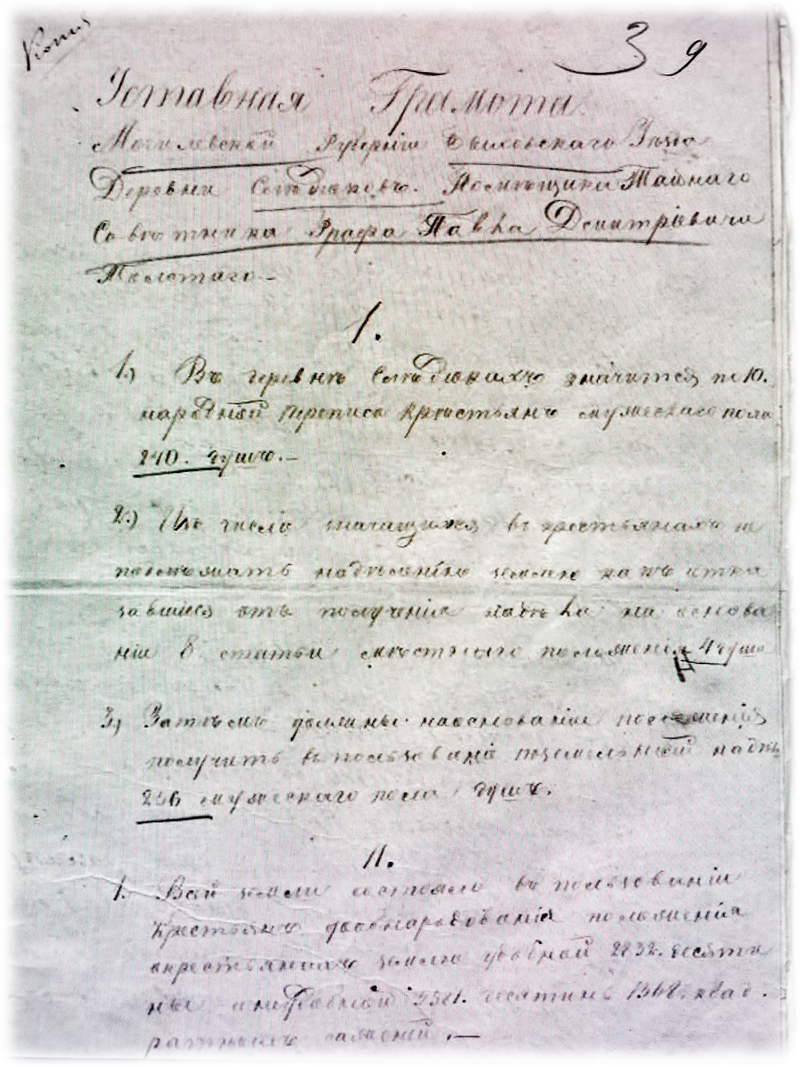 Копія
39
Уставная Грамота
Могилевской Губерніи Быховскаго Уѣзда
Деревни Селѣдцовъ. Помѣщика Тайнаго
Совѣтника Графа Павла Дмитріевича
Толстаго.
I.
1.) Въ деревнѣ значится по 10.
народной переписи крѣстьянъ мужескаго пола
240. душъ.
2.) Изъ числа значащихся въ крестьянахъ не
подлѣжатъ надѣленію землею какъ отка
завшіеся отъ полученія надѣла на основа
ніи 8. статьи мѣстнаго положенія 4 души
3) Затѣмъ должны на основаніи положенія
получить въ пользованіе поземельный надѣлъ
236 мужескаго пола душъ.
II.
1. Всей земли состояло въ пользованіи
крестьянъ дообнародованія положенія
окрестьянахъ землю удобной 2832. десяти
ны инеудобной десятинъ 1368. квад.
ратныхъ саженей.